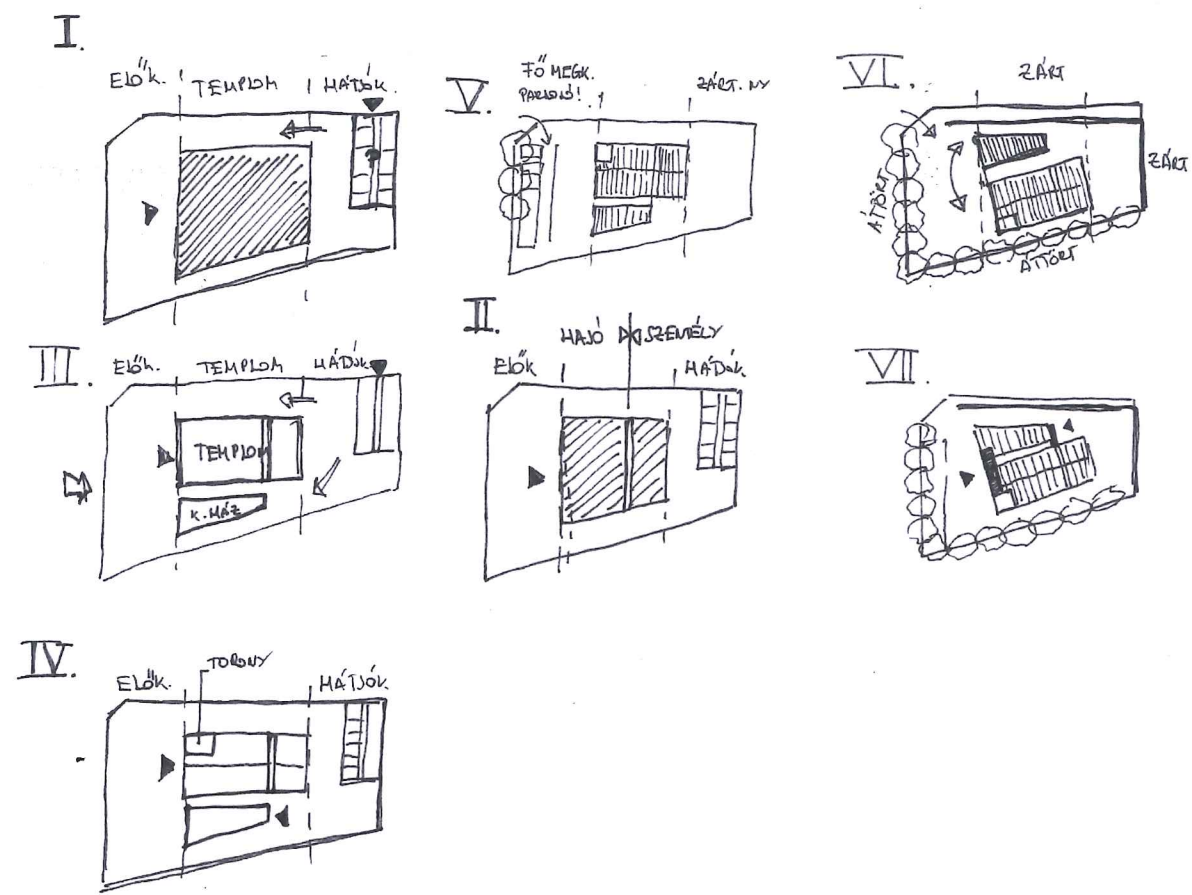 I.
ELŐK. TEMPLOM HÁTSÓK.
V.
FŐ MEGK.
PARKOLÓ!
ZÁRT. NY
VI.
ZÁRT
ÁTTÖRT
ZÁRT
ÁTTÖRT
III.
ELŐK. TEMPLOM HÁTSÓK
TEMPLOM
K.HÁZ
II.
HAJÓ SZEMÉLY
ELŐK HÁTSÓK
VII.
IV.
TORONY
ELŐK. HÁTSÓK